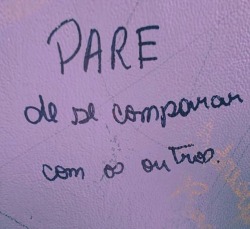 PARE
de se comparar
com os outros.